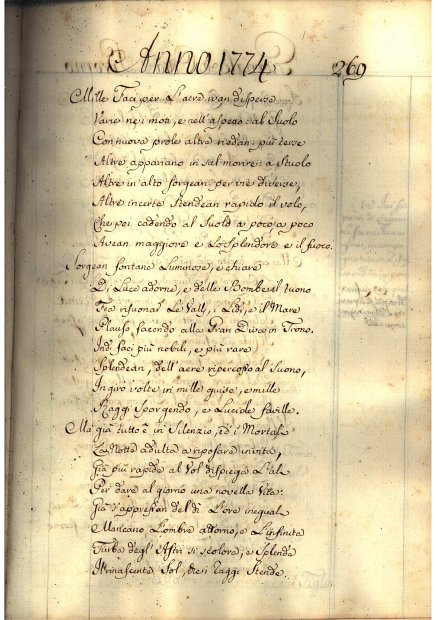 Anno 1774 269
Mille Faci per l'aere ivan disperse
Varie ne i moti, e nell'aspetto: al Suolo
Con nuova prole altre riedan: più terse
Altre appariano in sul morire: a Stuolo
Altre in alto sorgean per vie diverse,
Altre incerte Stendean rapido il volo,
Che poi cadendo al Suolo a poco, a poco
Avean maggiore e Lo Splendore e il fuoco.
Sorgean fontane Luminose, e chiare
Di Luce adorne, e delle Bombe al tuono
Fea risuonar Le Valli, i Lidi, e il Mare
Plauso, facendo alla Gran Diva in Trono.
Indi faci più nobili, e più rare
Splendean, dell'aere ripercosso al Suono,
In giro volte in mille guise, e mille
Raggi Spargendo, e Lucide faville.
Ma già tutto è in Silenzio, ed i Mortali
La Notte adulta a riposare invita,
Già più rapide al Vol dispiega L'ali
Per dare al giorno una novella Vita.
Già s'appressan del dì L'ore inegual
Mancano L'ombre attorno, e L'infinita
Turba degl'Astri si scolora, e Splende
Il rinascente Sol, che i raggi Stende.